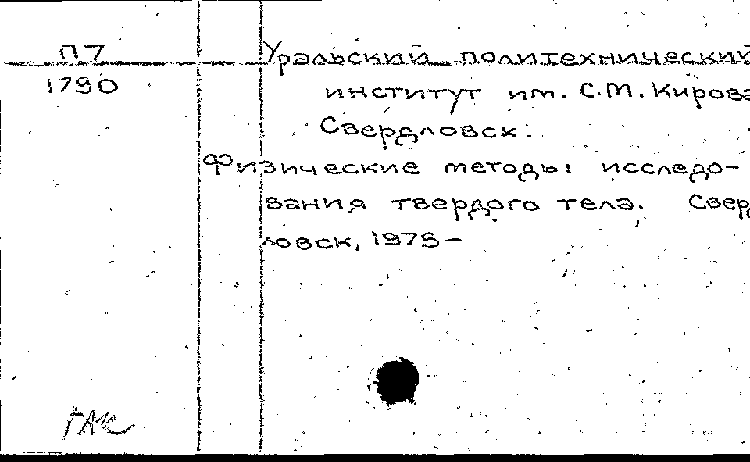 П7
1790
Уральский политехнический
институт им. С.М. Кирова
Свердловск.
Физические методы исследо-
вания твердого тела. Сверд
ловск, 1975-
ГАК